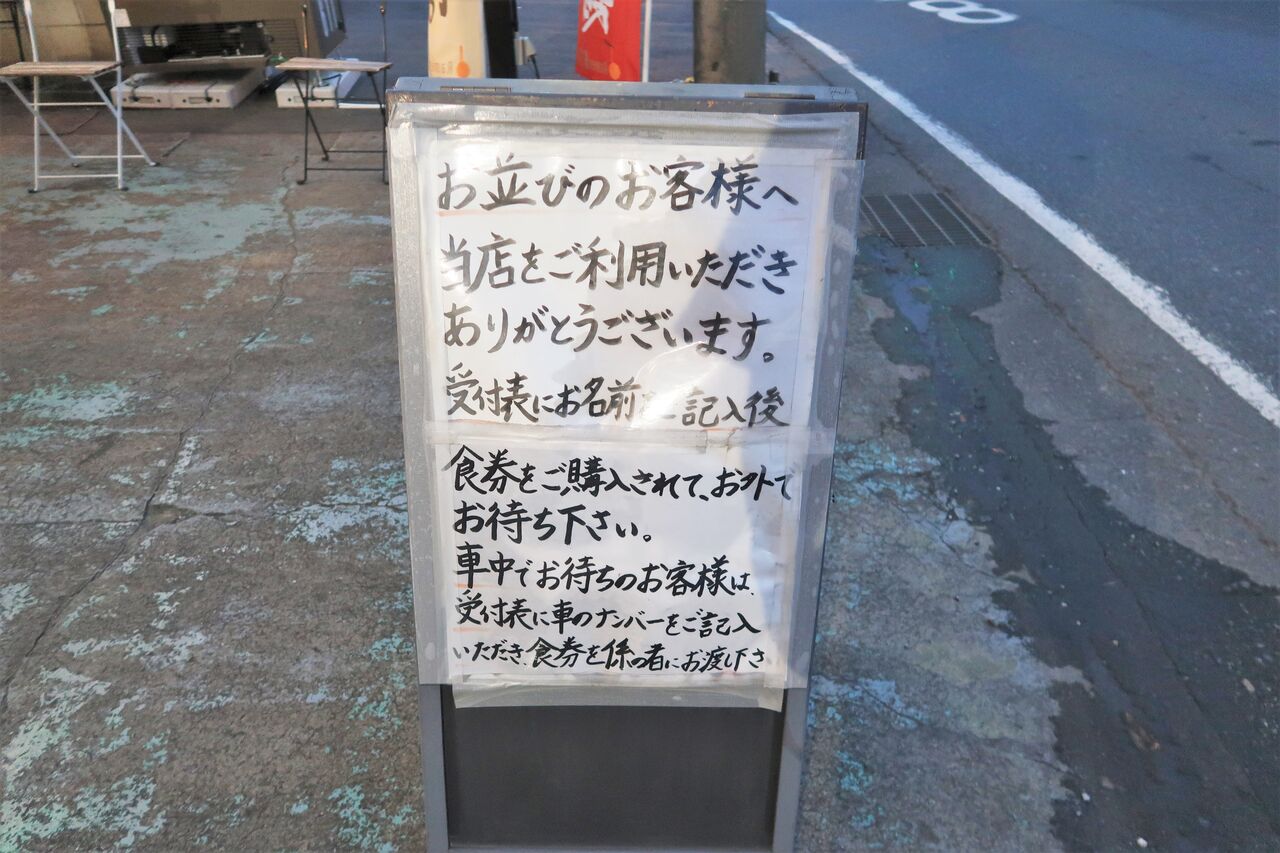 お並びのお客様へ
当店をご利用いただき
ありがとうございます。
受付表にお名前をご記入後
食券をご購入されて、お外で
お待ち下さい。
車中でお待ちのお客様は、
受付表に車のナンバーをご記入
いただき、食券を係の者にお渡し下さ